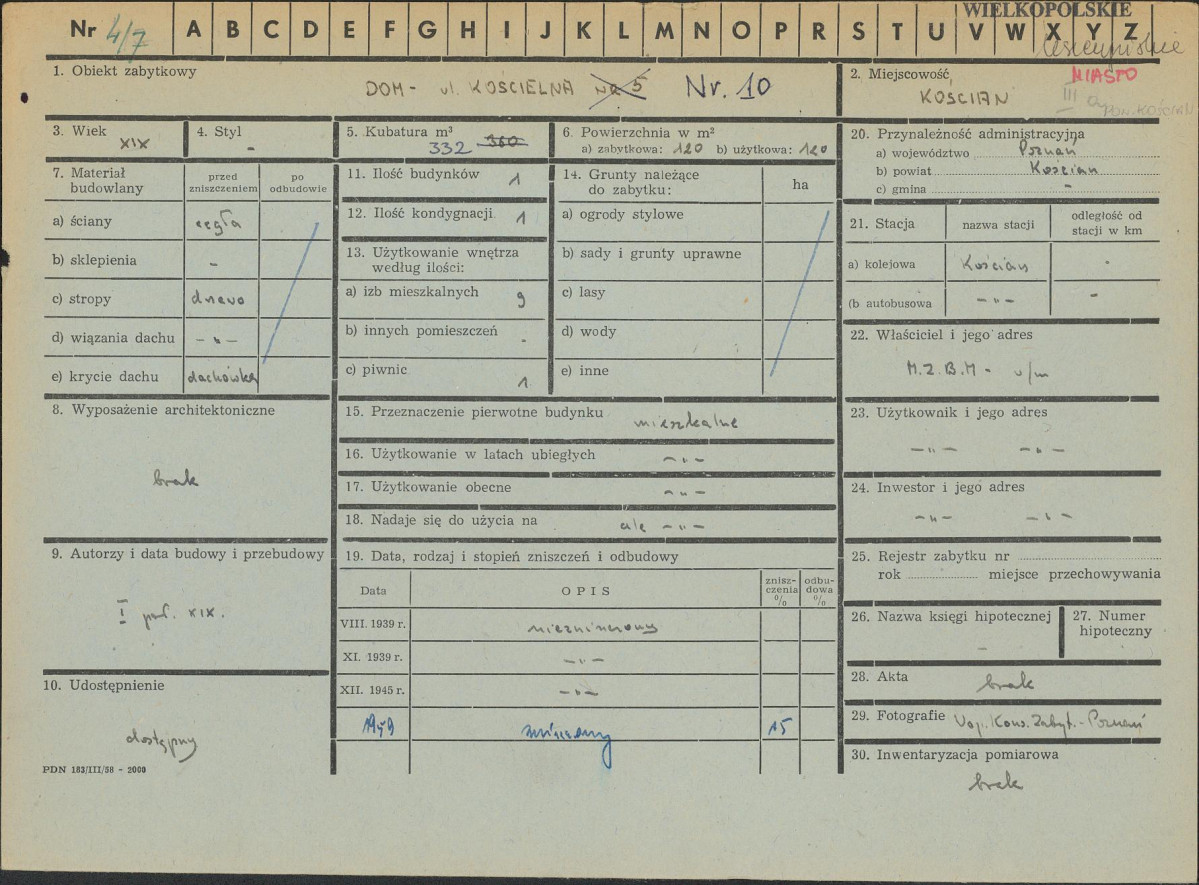 WIELKOPOLSKIE
Nr 4/7 A B C D E F G H I J K L M N O P R S T U V W X Y Z
1. Obiekt zabytkowy
DOM - ul. KOŚCIELNA Nr 5 Nr. 10
2. Miejscowość MIASTO
KOŚCIAN III
POW. KOŚCIAN
3. Wiek
XIX
4. Styl
-
5. Kubatura m³
332 360
6. Powierzchnia w m²
a) zabytkowa: 120 b) użytkowa: 120
7. Materiał budowlany
przed zniszczeniem
po odbudowie
a) ściany cegła
b) sklepienia -
c) stropy drewo
d) wiązania dachu - „ -
e) krycie dachu dachówka
8. Wyposażenie architektoniczne
brak
9. Autorzy i data budowy i przebudowy
I poł. XIX.
10. Udostępnienie
dostępny
PDN 183/III/58 - 2000
11. Ilość budynków 1
12. Ilość kondygnacji 1
13. Użytkowanie wnętrza
według ilości:
a) izb mieszkalnych 9
b) innych pomieszczeń -
c) piwnic 1
14. Grunty należące
do zabytku:
ha
a) ogrody stylowe
b) sady i grunty uprawne
c) lasy
d) wody
e) inne
15. Przeznaczenie pierwotne budynku mieszkalne
16. Użytkowanie w latach ubiegłych - „ -
17. Użytkowanie obecne - „ -
18. Nadaje się do użycia na cele - „ -
19. Data, rodzaj i stopień zniszczeń i odbudowy
Data
OPIS
znisz-
czenia
%
odbu-
dowa
%
VIII. 1939 r. niezniszczony
XI. 1939 r. - „ -
XII. 1945 r. - „ -
1959 zniszczony 15
20. Przynależność administracyjna
a) województwo Poznań
b) powiat Kościan
c) gmina -
21. Stacja
nazwa stacji
odległość od
stacji w km
a) kolejowa Kościan -
(b autobusowa - „ - -
22. Właściciel i jego adres
M.Z.B.M - v/m
23. Użytkownik i jego adres
- „ - - „ -
24. Inwestor i jego adres
- „ - - „ -
25. Rejestr zabytku nr
rok miejsce przechowywania
26. Nazwa księgi hipotecznej
-
27. Numer
hipoteczny
28. Akta
brak
29. Fotografie Woj. Kons. Zabyt. - Poznań
30. Inwentaryzacja pomiarowa
brak